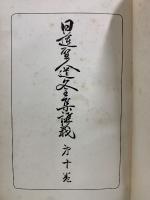 日蓮聖人遺文全集講義
第十巻